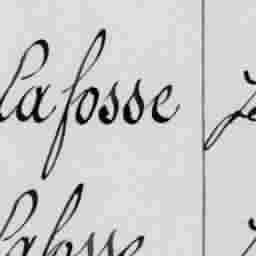 Lafosse
Lafosse